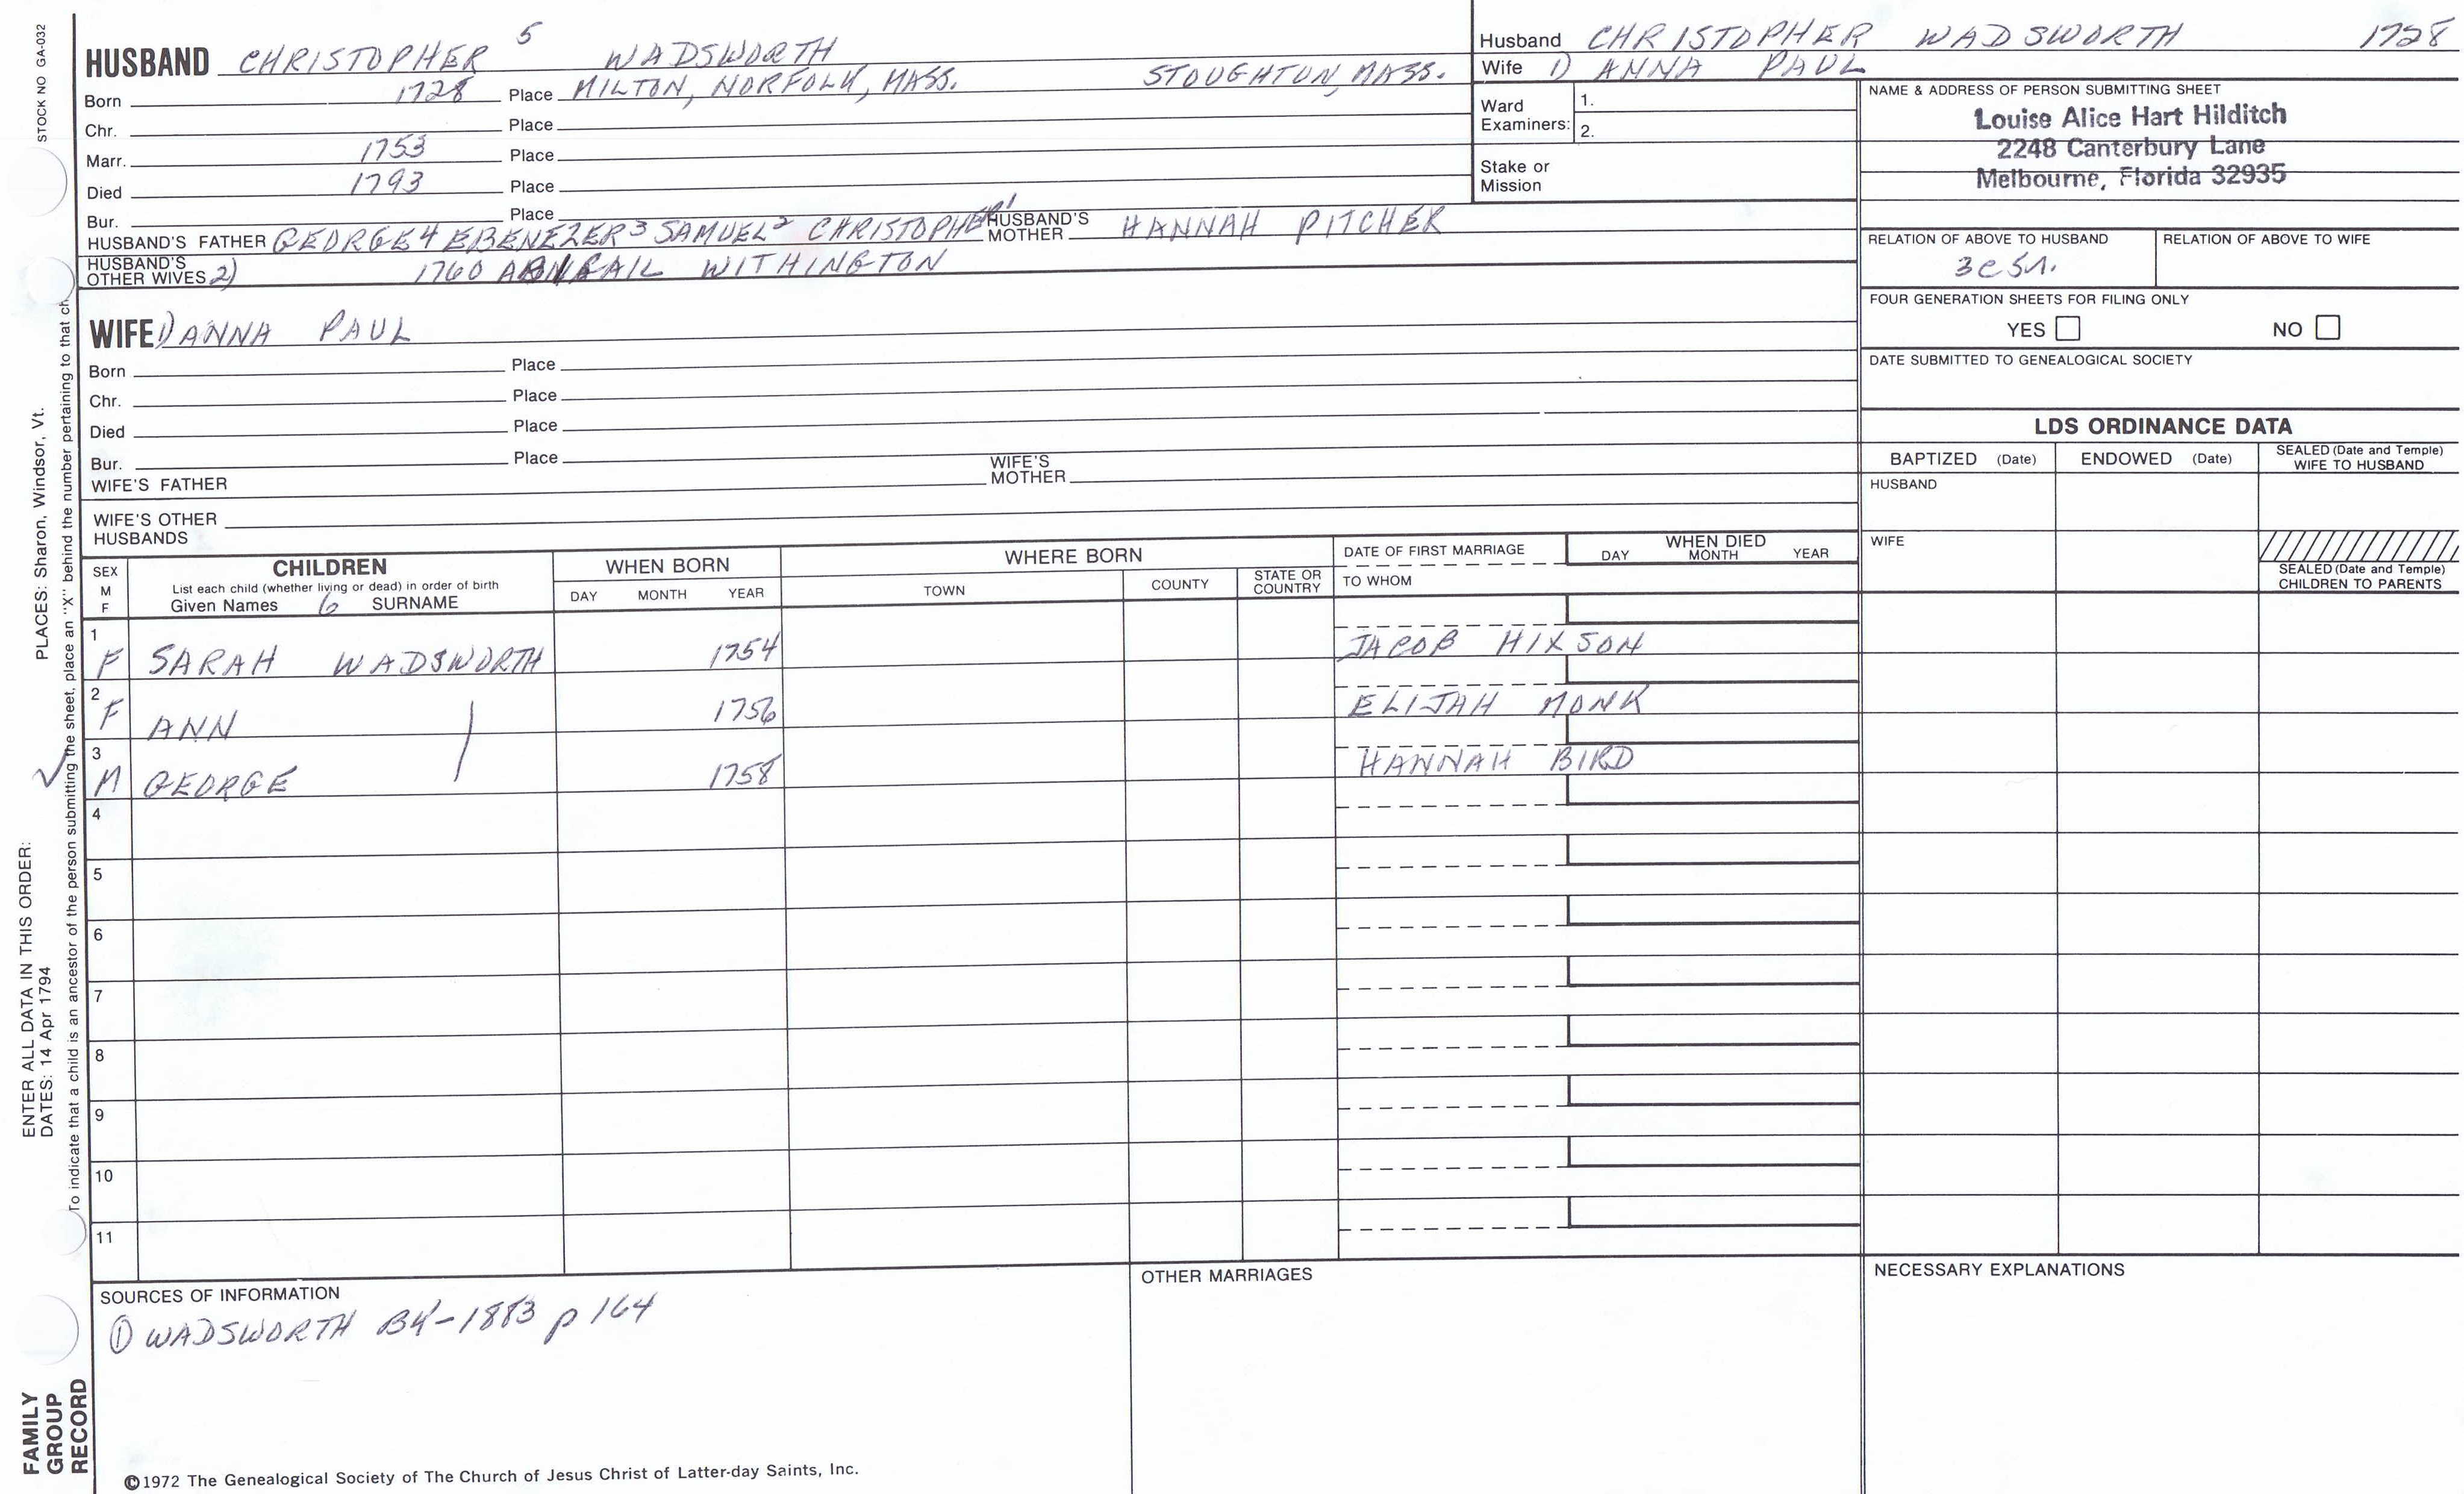 STOCK NO GA-032
HUSBAND CHRISTOPHER 5 WADSWORTH
Born 1728 Place MILTON, NORFOLK, MASS. STOUGHTON, MASS.
Chr. Place
Marr. 1753 Place
Died 1793 Place
Bur. Place
HUSBAND'S FATHER GEORGE 4 EBENEZER 3 SAMUEL 2 CHRISTOPHER 1 HUSBAND'S MOTHER HANNAH PITCHER
HUSBAND'S OTHER WIVES 2) 1760 ABIGAIL WITHINGTON
WIFE 1) ANNA PAUL
Born Place
Chr. Place
Died Place
Bur. Place
WIFE'S FATHER WIFE'S MOTHER
WIFE'S OTHER HUSBANDS
Husband CHRISTOPHER WADSWORTH 1728
Wife 1) ANNA PAUL
Ward Examiners: 1.
2.
Stake or Mission
NAME & ADDRESS OF PERSON SUBMITTING SHEET
Louise Alice Hart Hilditch
2248 Canterbury Lane
Melbourne, Florida 32935
RELATION OF ABOVE TO HUSBAND RELATION OF ABOVE TO WIFE
FOUR GENERATION SHEETS FOR FILING ONLY
YES NO
DATE SUBMITTED TO GENEALOGICAL SOCIETY
LDS ORDINANCE DATA
BAPTIZED (Date) ENDOWED (Date) SEALED (Date and Temple) WIFE TO HUSBAND
HUSBAND
WIFE
SEALED (Date and Temple) CHILDREN TO PARENTS
SEX M F CHILDREN WHEN BORN WHERE BORN DATE OF FIRST MARRIAGE WHEN DIED
List each child (whether living or dead) in order of birth
Given Names 6 SURNAME DAY MONTH YEAR TOWN COUNTY STATE OR COUNTRY TO WHOM DAY MONTH YEAR
1 F SARAH WADSWORTH 1754 JACOB HIXSON
2 F ANN 1756 ELIJAH MONK
3 M GEORGE 1758 HANNAH BIRD
4
5
6
7
8
9
10
11
SOURCES OF INFORMATION
① WADSWORTH BK-1883 p 164
OTHER MARRIAGES
NECESSARY EXPLANATIONS
©1972 The Genealogical Society of The Church of Jesus Christ of Latter-day Saints, Inc.
ENTER ALL DATA IN THIS ORDER:
DATES: 14 Apr 1794 PLACES: Sharon, Windsor, Vt.
To indicate that a child is an ancestor of the person submitting the sheet, place an "X" behind the number pertaining to that ch
FAMILY GROUP RECORD